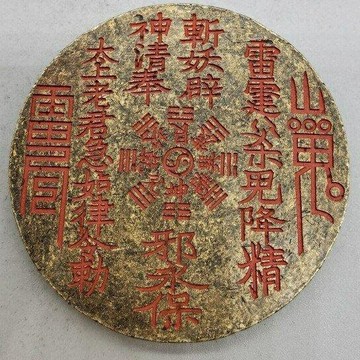 雷霆〻杀鬼降精
斬妖辟
邪永保
神清奉
太上老君急如律令勅